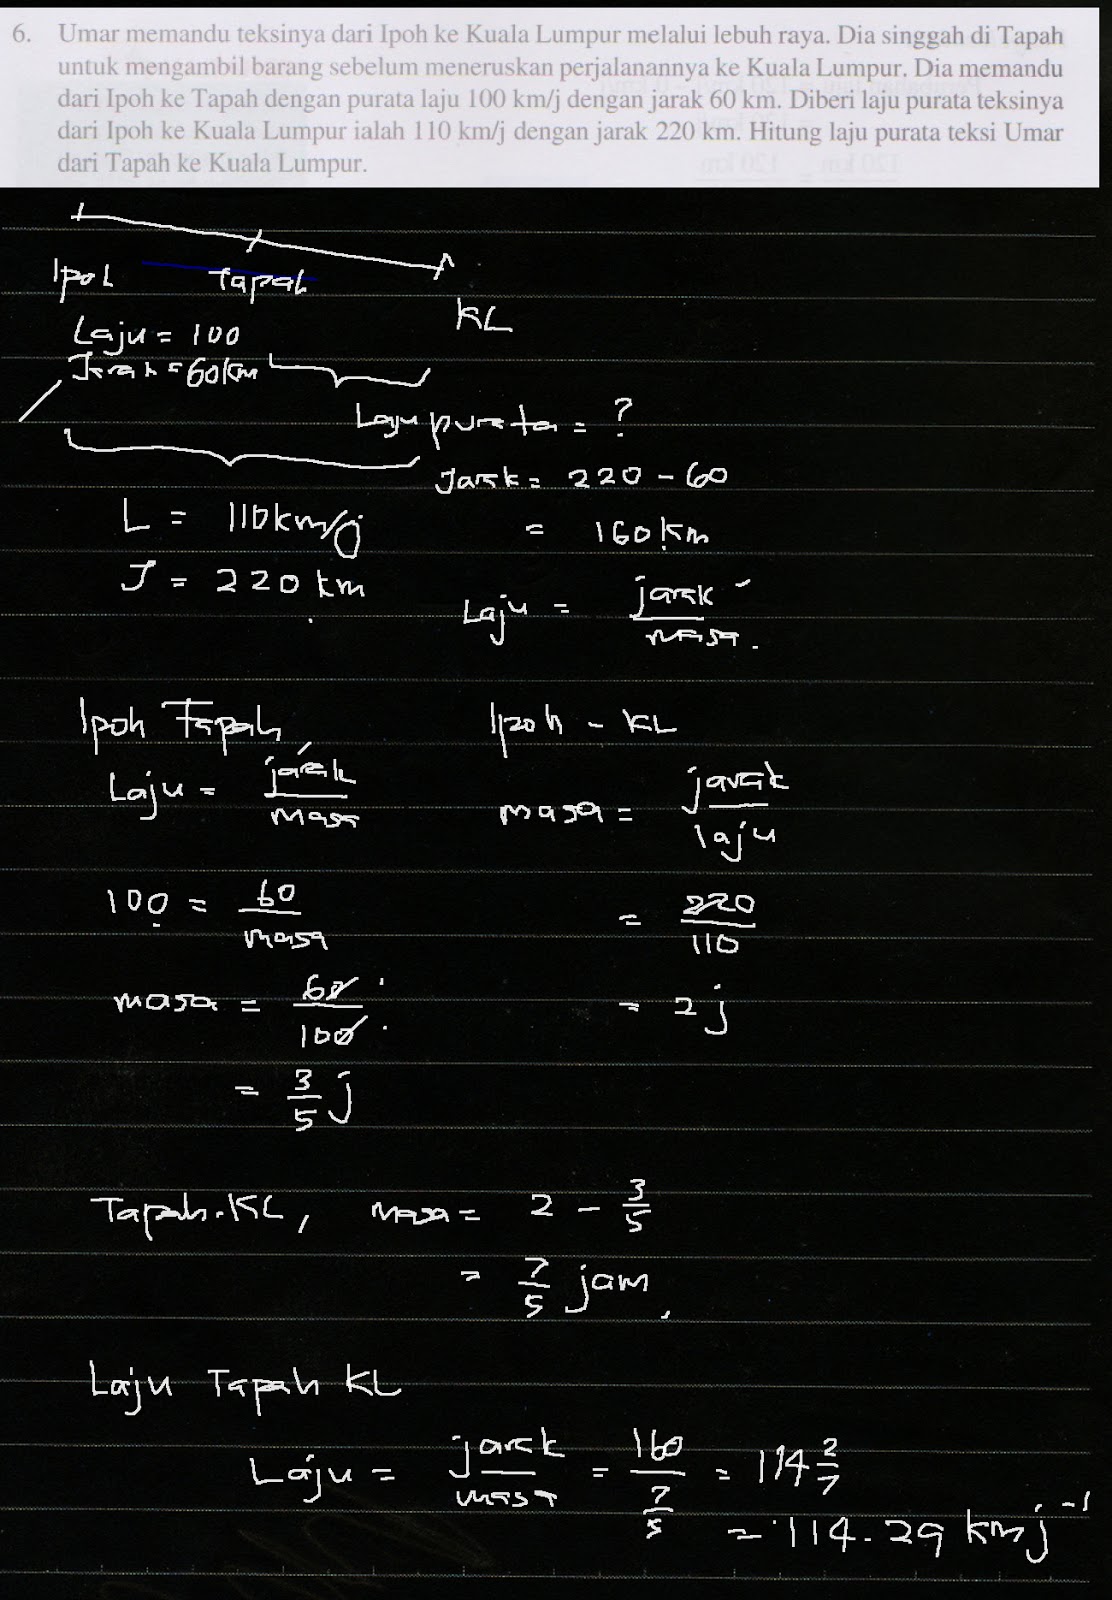 6. Umar memandu teksinya dari Ipoh ke Kuala Lumpur melalui lebuh raya. Dia singgah di Tapah
untuk mengambil barang sebelum meneruskan perjalanannya ke Kuala Lumpur. Dia memandu
dari Ipoh ke Tapah dengan purata laju 100 km/j dengan jarak 60 km. Diberi laju purata teksinya
dari Ipoh ke Kuala Lumpur ialah 110 km/j dengan jarak 220 km. Hitung laju purata teksi Umar
dari Tapah ke Kuala Lumpur.
Ipoh Tapah
KL
Laju = 100
Jarak = 60km
Laju purata = ?
Jarak = 220 - 60
L = 110km/j = 160km
J = 220 km
Laju = jarak/masa.
Ipoh Tapah Ipoh - KL
Laju = jarak/masa masa = jarak/laju
100 = 60/masa = 220/110
masa = 60/100 = 2j
= 3/5 j
Tapah-KL, masa = 2 - 3/5
= 7/5 jam,
Laju Tapah KL
Laju = jarak/masa = 160/(7/5) = 114 2/7
= 114.29 kmj⁻¹